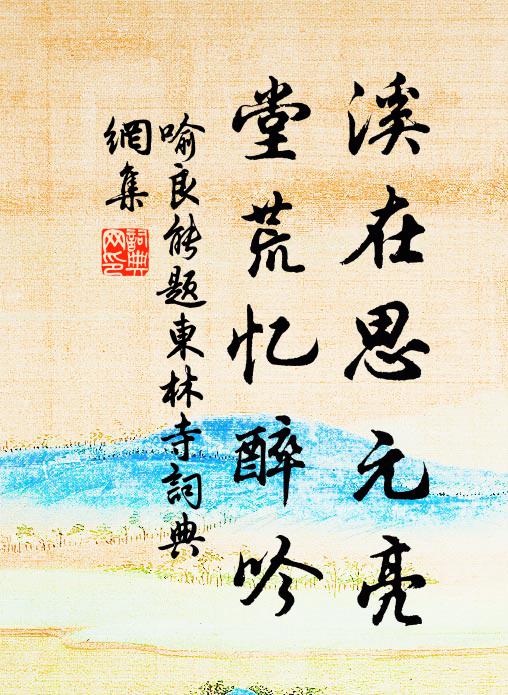 溪在思元亮
堂荒忆醉吟
喻良能題東林寺詞典
網集
詞典
网印